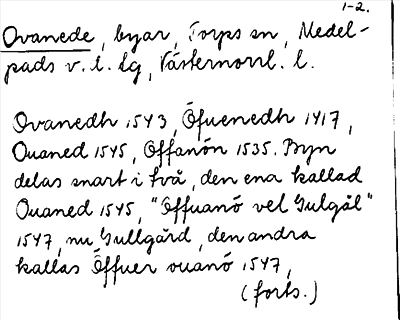 1-2.
Ovanede, byar, Torps sn, Medel-
pads v. t. lg, Västernorrl. l.
Ovanedh 1543, Öfuenedh 1417,
Ouaned 1545, Offanön 1535. Byn
delas snart i två, den ena kallad
Ouaned 1545, "Offuanö vel Gulgål"
1547, nu Gullgård, den andra
kallas Öffuer ouanö 1547,
(forts.)